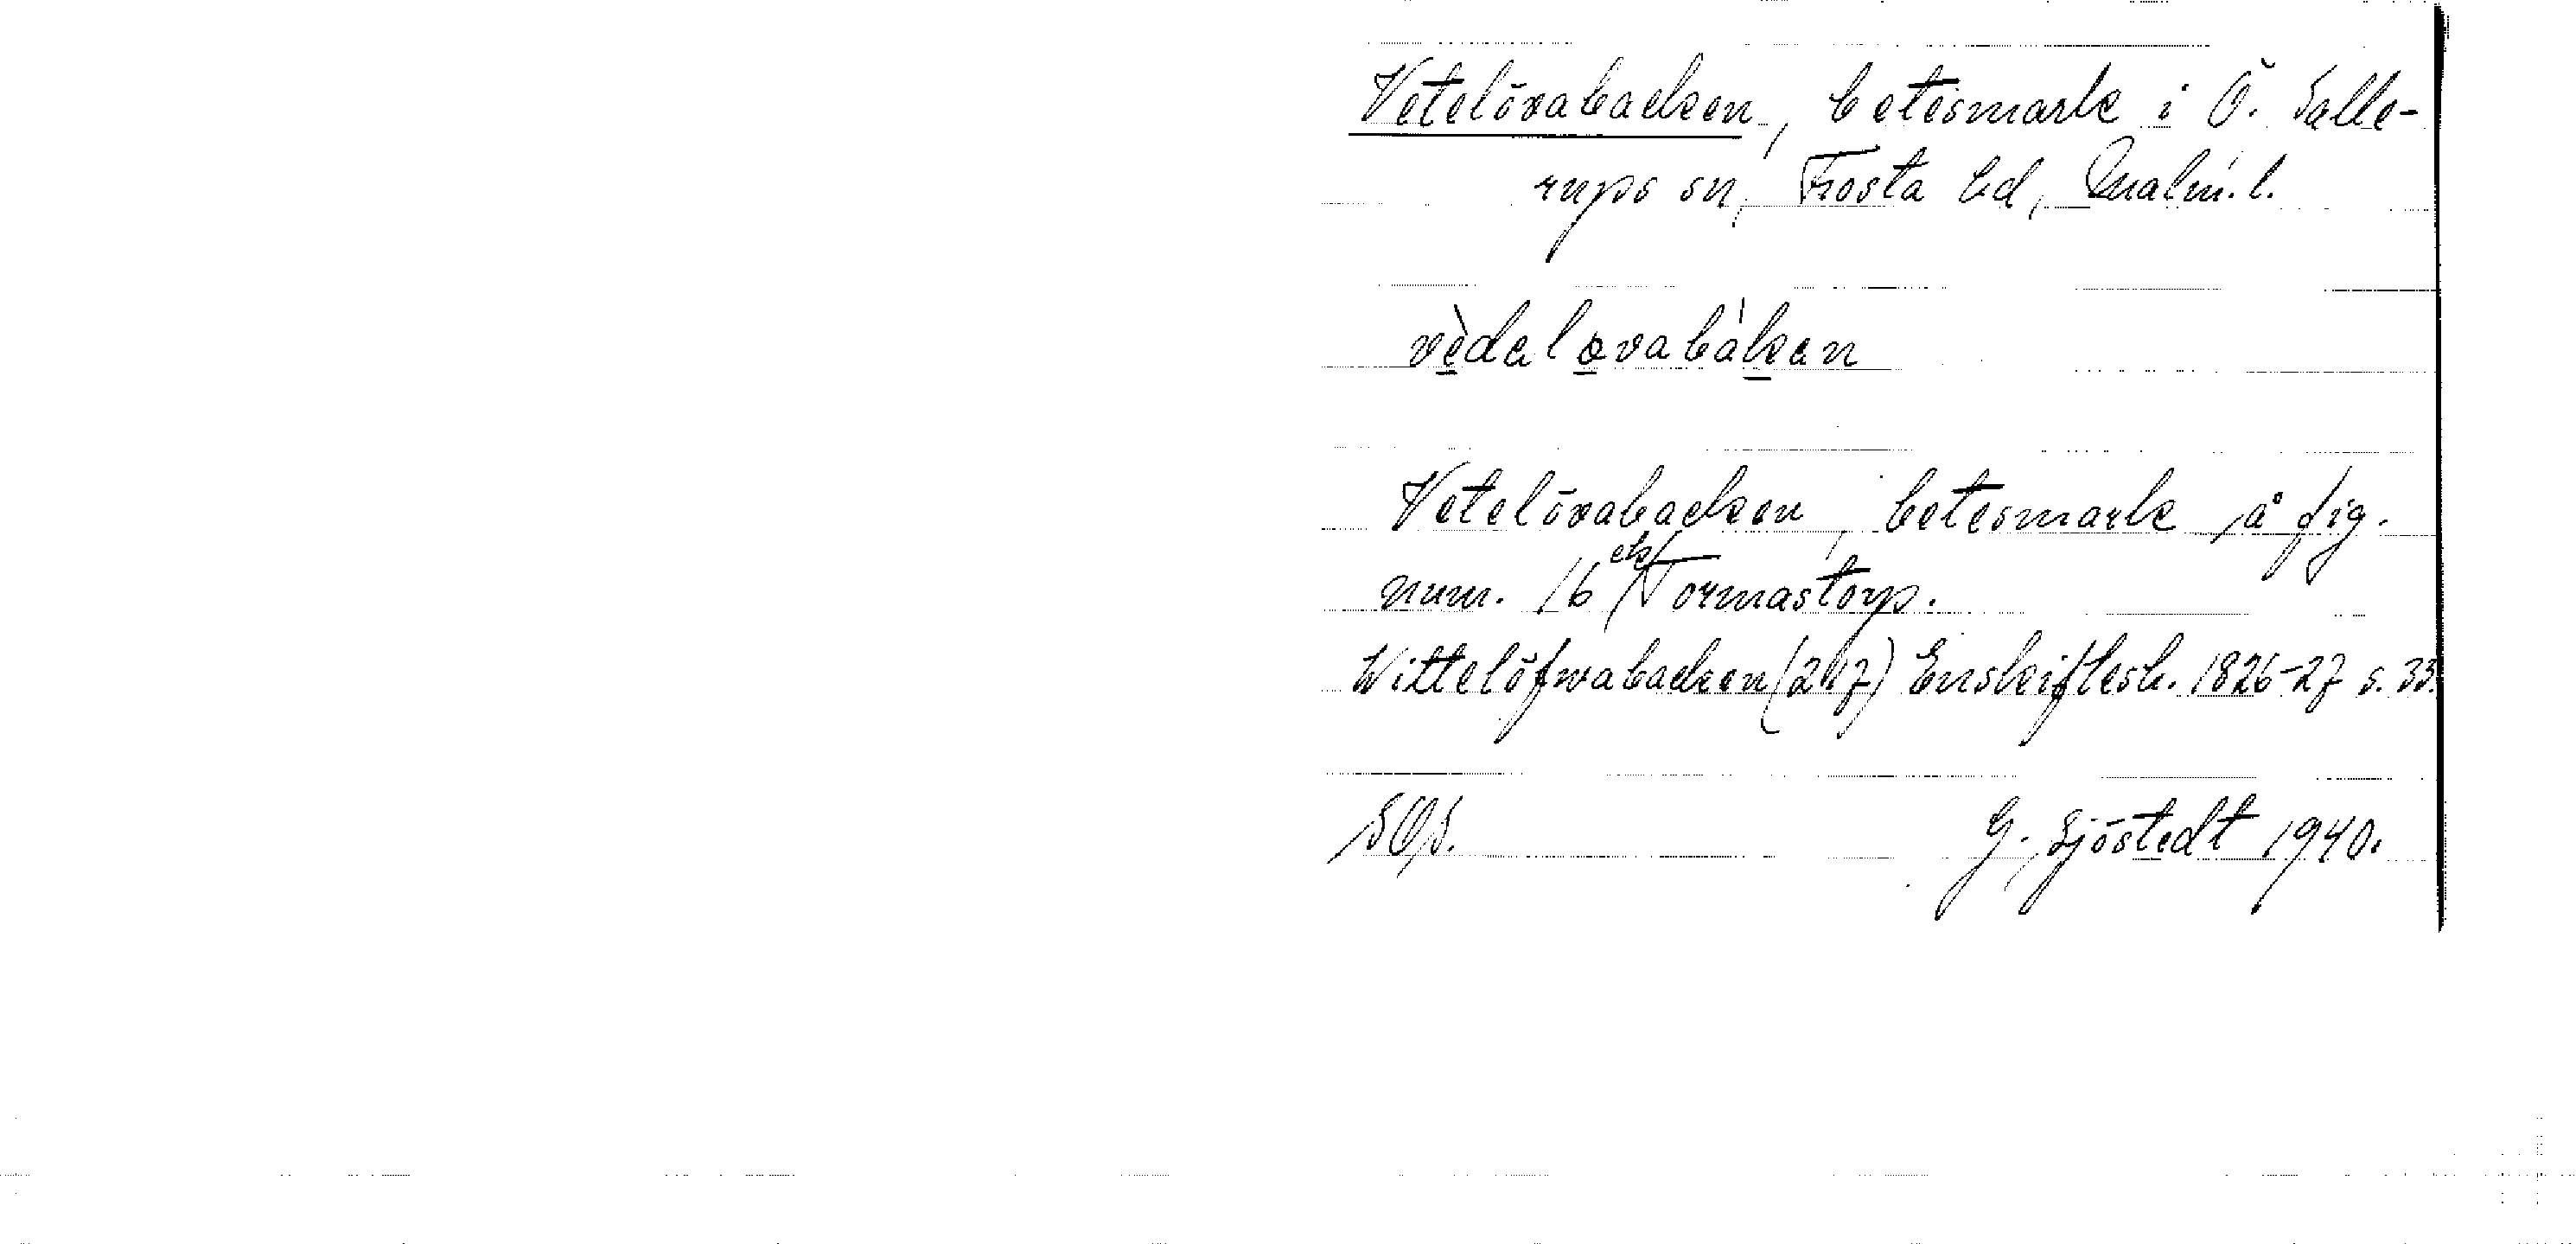 Vetelövabacken, betesmark i Ö. Salle-
rups sn, Frosta hd, Malm. l.
vèdelovabàkan
Vetelövabacken, betesmark på fig.
num. 16 ek/Tormastorp.
Wittelöfwabacken (217) Enskiftesh. 1826-27 s. 33.
SOS. G. Sjöstedt 1940.